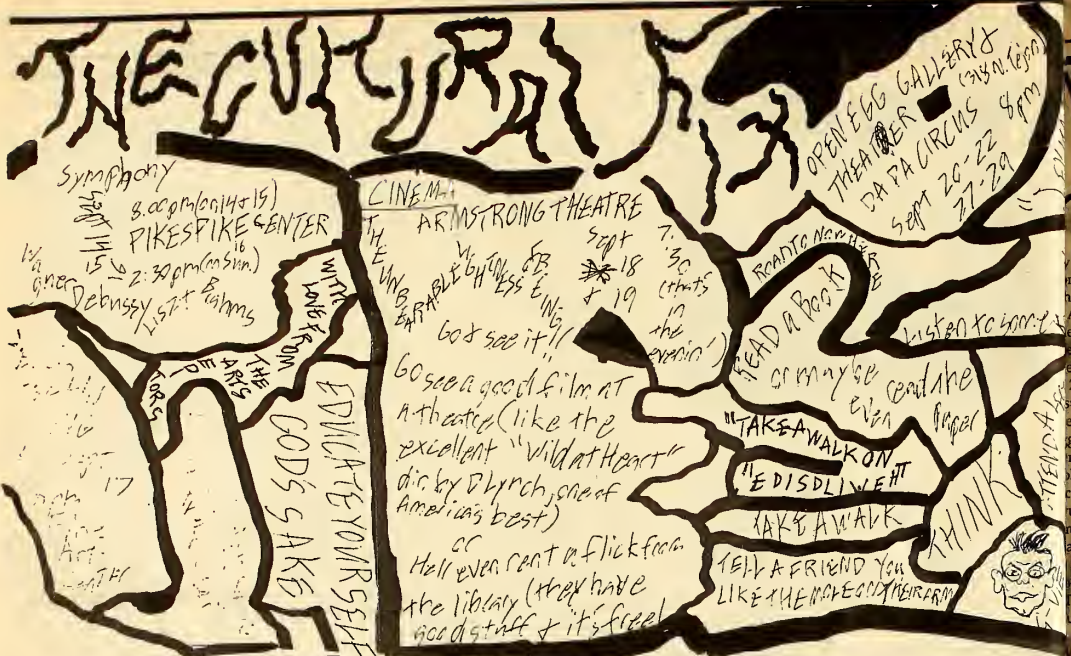 THE CULTURAL FIX
Symphony
Sept 14, 15 &
16
8:00pm (on 14 & 15)
PIKES PIKE CENTER
2:30pm (on Sun.)
Wagner
Debussy Liszt & Brahms
WITH LOVE FROM
THE ARTS
EDITORS
17
EDUCATE YOURSELF
GOD'S SAKE
CINEMA
ARMSTRONG THEATRE
THE UNBEARABLE LIGHTNESS OF BEING
Sept
18
& 19
7:30
(that's
in
the
evenin')
Go & see it!!
Go see a good film at
a theatre (like the
excellent "Wild at Heart"
dir. by D Lynch, one of
America's best)
or
Hell even rent a flick from
the library (they have
good stuff & it's free!
OPEN EGG GALLERY &
THEATER
N. Tejon
DADA CIRCUS 8pm
Sept 20-22
27-29
ROAD TO NOWHERE
READ a BOOK
or maybe
even read the
paper
Listen to some
"TAKE A WALK ON
"EDISDLIWEHT
TAKE A WALK
THINK
ATTEND A
TELL A FRIEND YOU
LIKE THE MOLE ON THEIR ARM